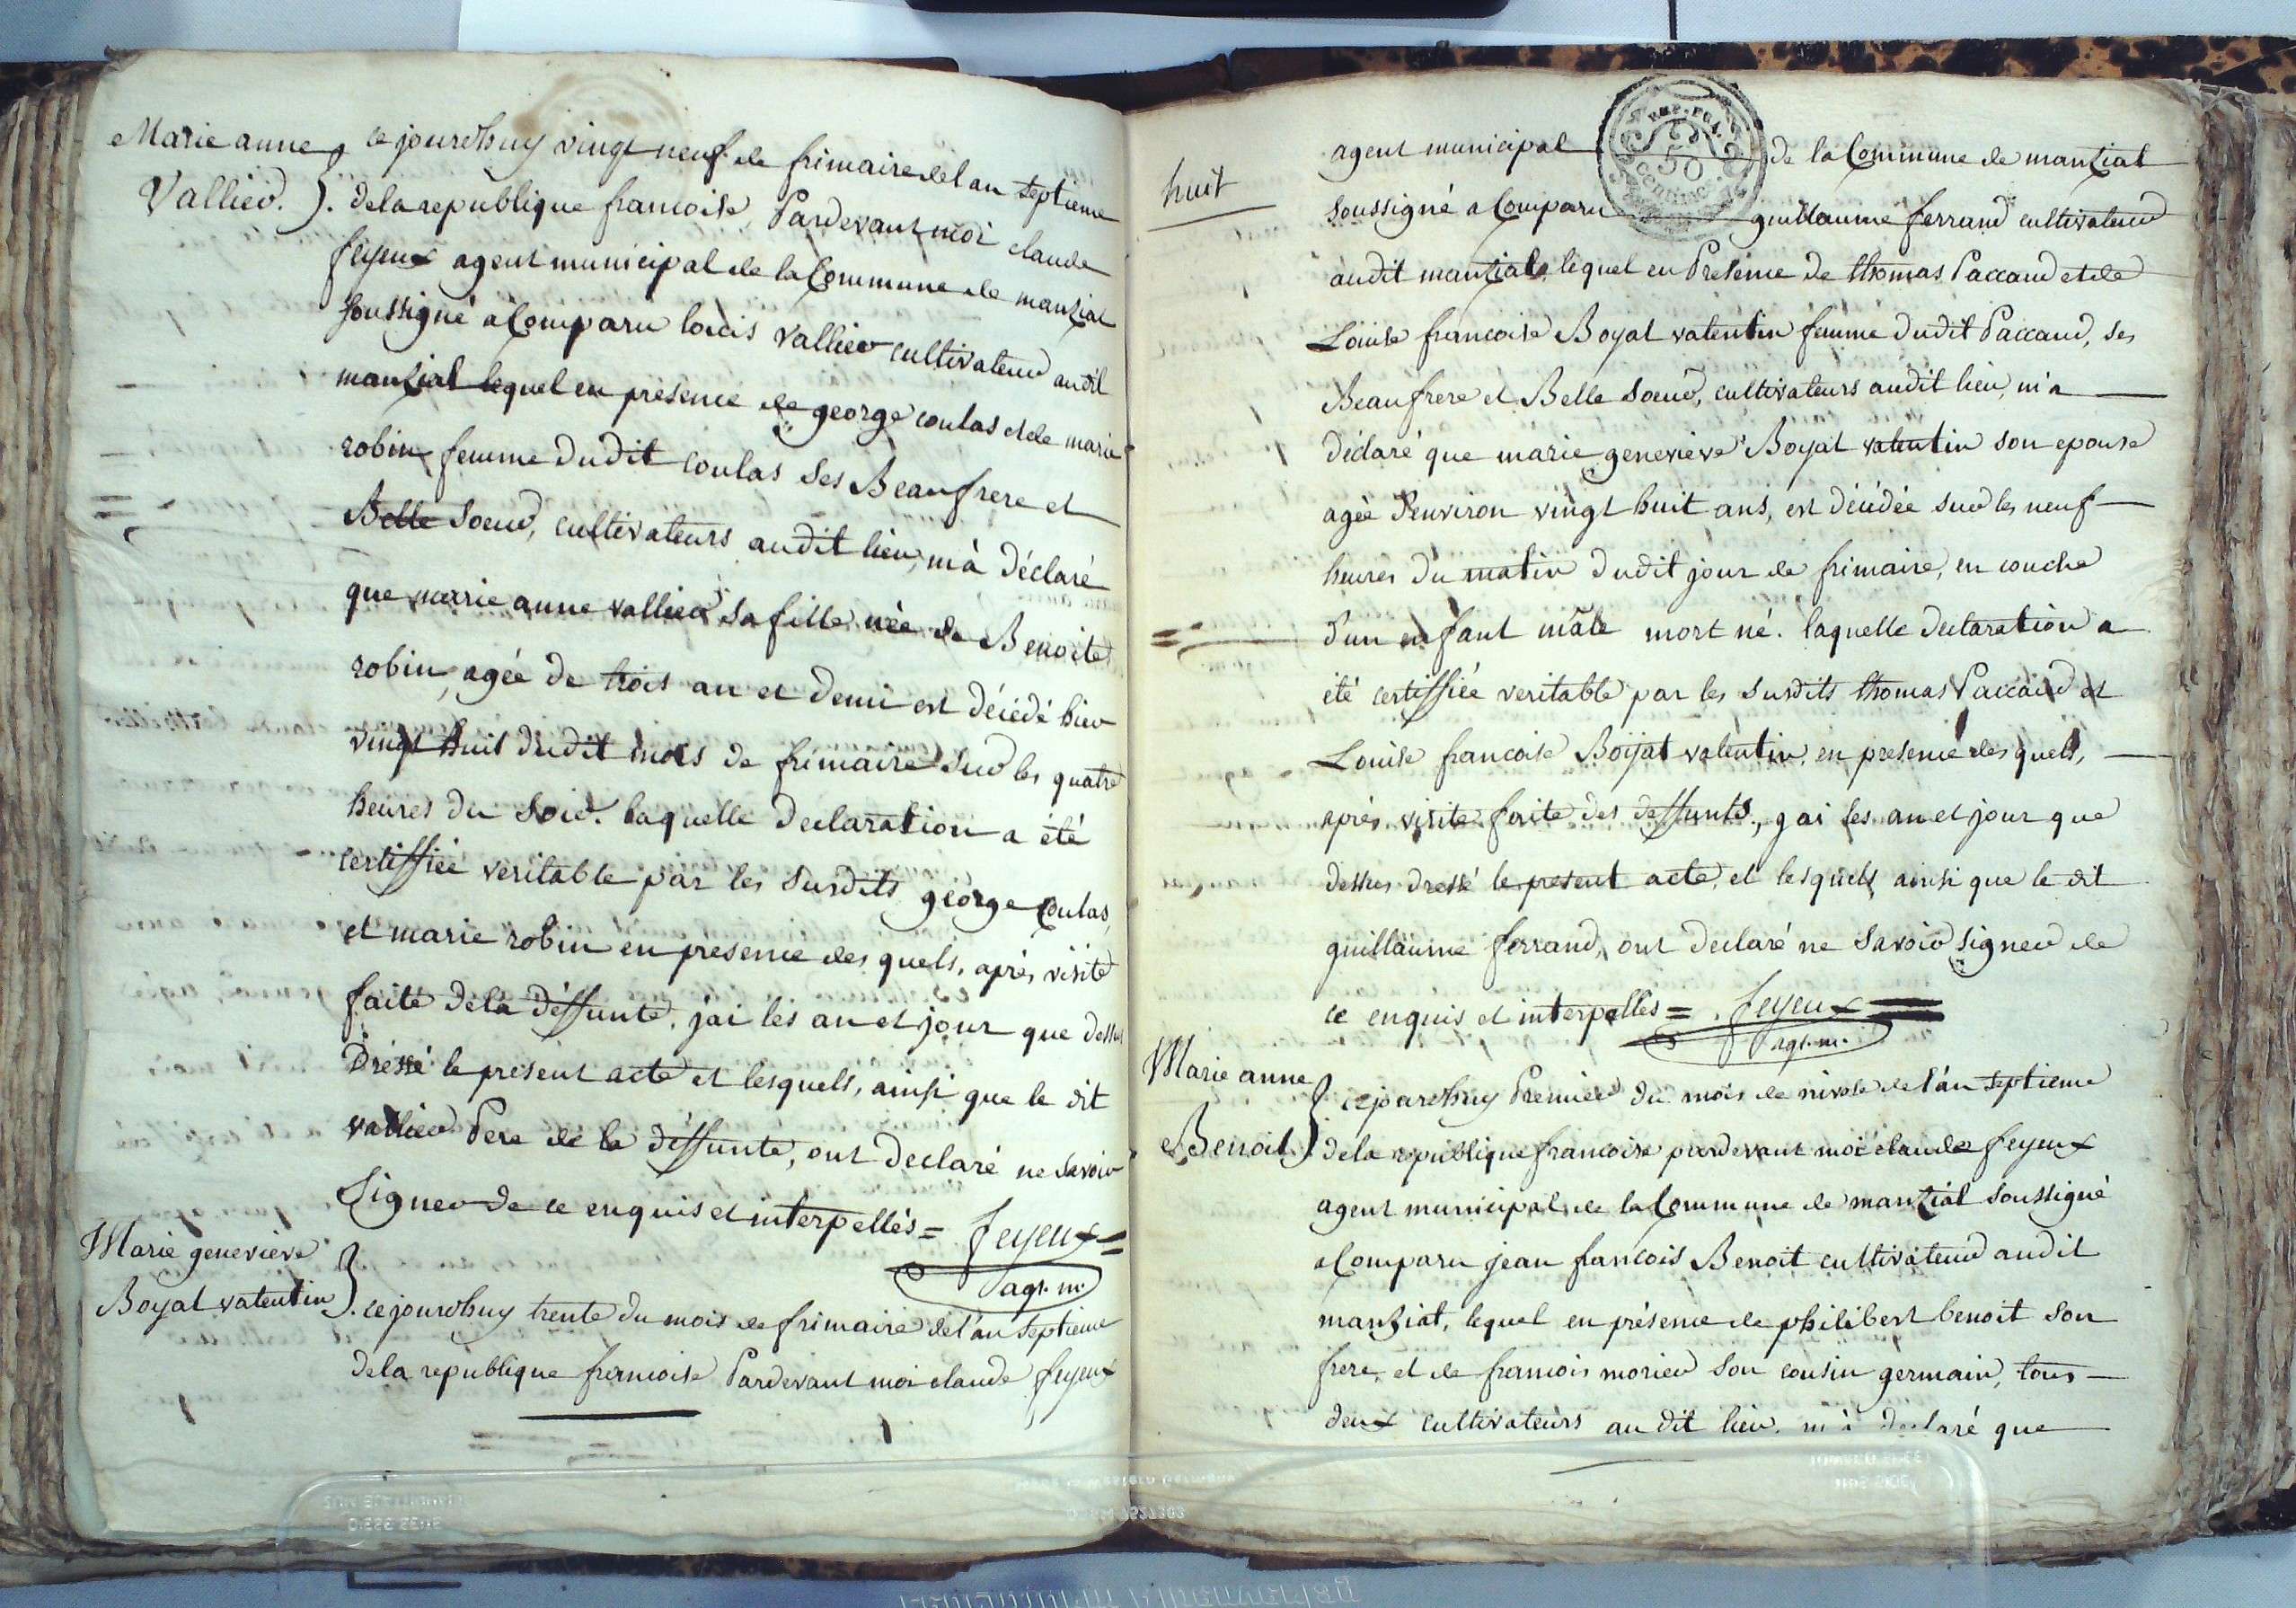 Marie anne
Vallier.
ce jourdhuy vingt neuf de frimaire de l an septieme
de la republique francoise, Pardevant moi claude
feyeux agent municipal de la Commune de manziat
soussigné a Comparu louis vallier cultivateur audit
manziat lequel en presence de george coulas et de marie
robin femme dudit coulas ses Beaufrere et
Belle soeur, cultivateurs audit lieu, m'a déclaré
que marie anne vallier sa fille née de Benoite
robin, agée de trois an et demi est décédé hier
vingt huit dudit mois de frimaire sur les quatre
heures du soir. laquelle declaration a été
certiffiée veritable par les susdits george Coulas,
et marie robin en presence des quels, après visite
faite de la déffunte, j'ai les an et jour que dessus
Dressé le present acte et lesquels, ainsi que le dit
vallier Pere de la deffunte, ont declaré ne savoir
signer de ce enquis et interpellés = feyeux =
agt. m.
Marie genevieve
Boyat valentin
ce jourdhuy trente du mois de frimaire de l'an septieme
de la republique francoise Pardevant moi claude feyeux
huit
agent municipal de la Commune de manziat
REP. FRA.
50
centimes
soussigné a Comparu guillaume ferrand cultivateur
audit manziat, lequel en Presence de thomas Paccaud et de
Louise francoise Boyat valentin femme dudit Paccaud, ses
Beaufrere et Belle soeur, cultivateurs audit lieu, m'a
déclaré que marie genevieve Boyat valentin son epouse
agée d'environ vingt huit ans, est décédée sur les neuf
heures du matin dudit jour de frimaire, en couche
d'un enfant mâle mort né. laquelle declaration a
été certiffiée veritable par les susdits thomas Paccaud et
Louise francoise Boyat valentin, en presence des quels,
après visite faite des deffunts, j ai les an et jour que
dessus dressé le present acte, et lesquels ainsi que le dit
guillaume ferrand, ont declaré ne savoir signer de
ce enquis et interpelles = . feyeux
agt. m.
Marie anne
Benoit
ce jourdhuy Premier du mois de nivose de l'an septieme
de la republique francoise pardevant moi claude feyeux
agent municipal de la Commune de manziat soussigné
a Comparu jean francois Benoit cultivateur audit
manziat, lequel en présence de philibert benoit son
frere, et de francois morier son cousin germain, tous
deux cultivateurs au dit lieu, m'a declaré que